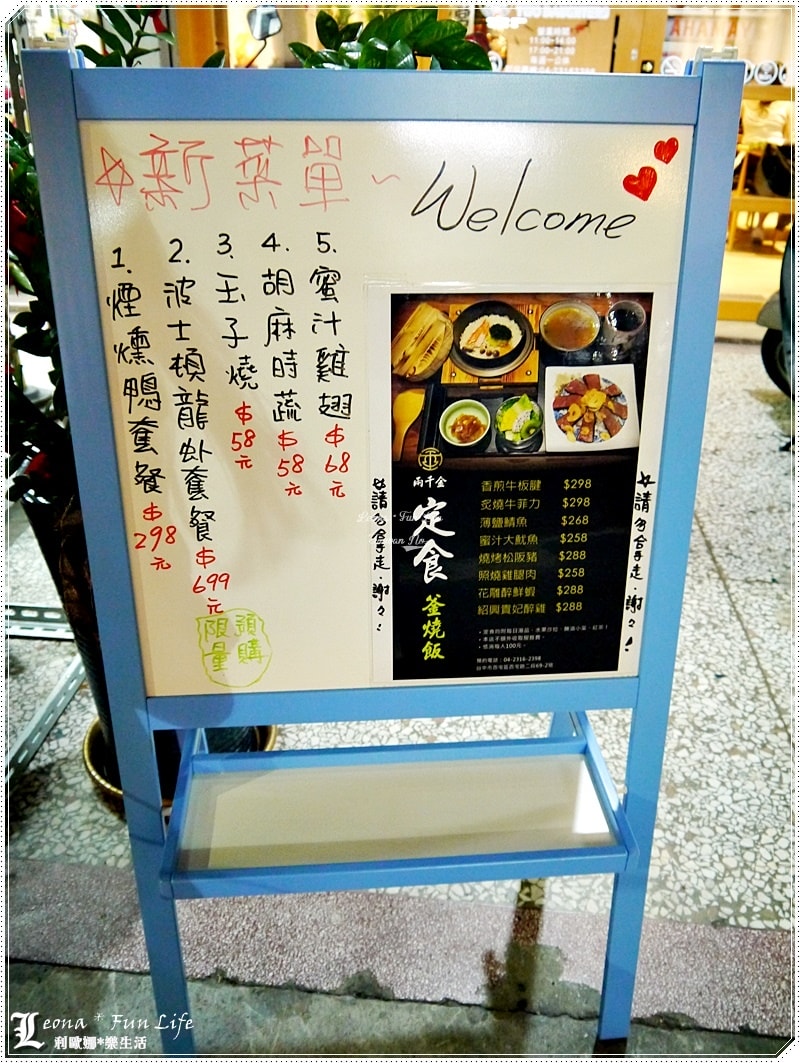 新菜單~
Welcome
1. 煙燻鴨套餐 $298元
2. 波士頓龍虾套餐 $699元
3. 玉子燒 $58元
4. 胡麻時蔬 $58元
5. 蜜汁雞翅 $68元
預購
限量
兩千金
定食
釜燒飯
香煎牛板腱 $298
炙燒牛菲力 $298
薄鹽鯖魚 $268
蜜汁大魷魚 $258
燒烤松阪豬 $288
照燒雞腿肉 $258
花雕醉鮮蝦 $288
紹興貴妃醉雞 $288
・低消每人100元。
預約電話:04-2316-2398
台中市西屯區西屯路二段69-2號
請勿拿走,謝々!
請勿拿走,謝々!
Leona * Fun Life
利歐娜*樂生活